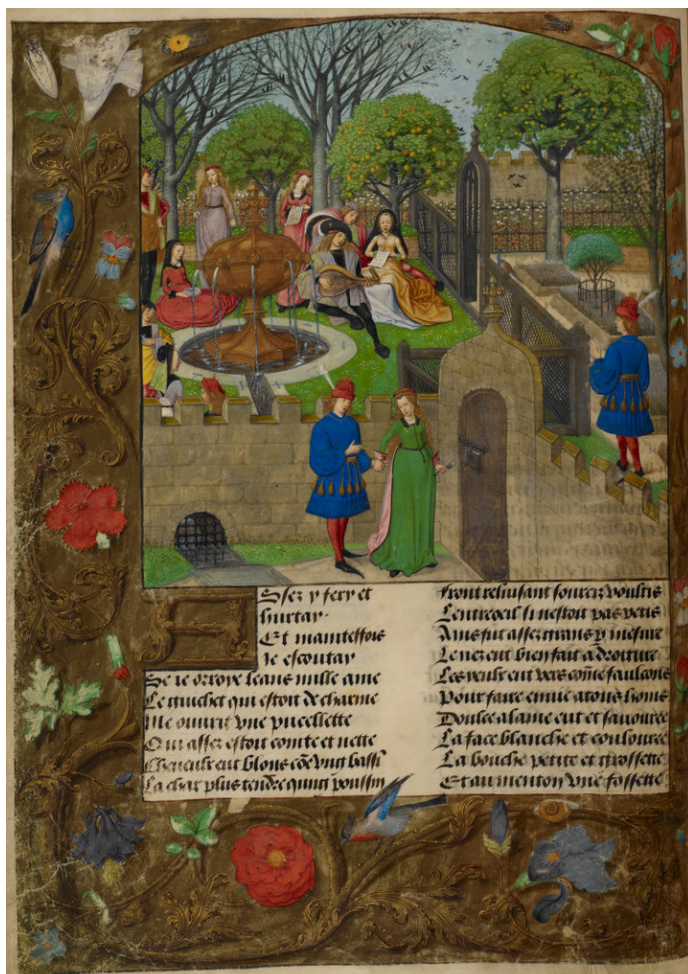 Assez y fery et
hurtay
Et maintesfois
Je escoutay
Se ie orroye leans nulle ame
Le guichet qui estoit de charme
Me ouvrit vne pucellette
Qui assez estoit cointe et nette
Cheveulx eut blons côe vng bassî
La char plus tendre qung poussin
Front reluisant sourcz voultis
Lentreoeil si nestoit pas petis
Ains fut assez grans p mesure
Le nez eut bien fait a droiture
Les yeulx eut vers côme faulcons
Pour faire enuie a tous homs
Doulce alaine eut et sauouree
La face blanche et coulouree
La bouche petite et grossette
Et au menton vne fossette